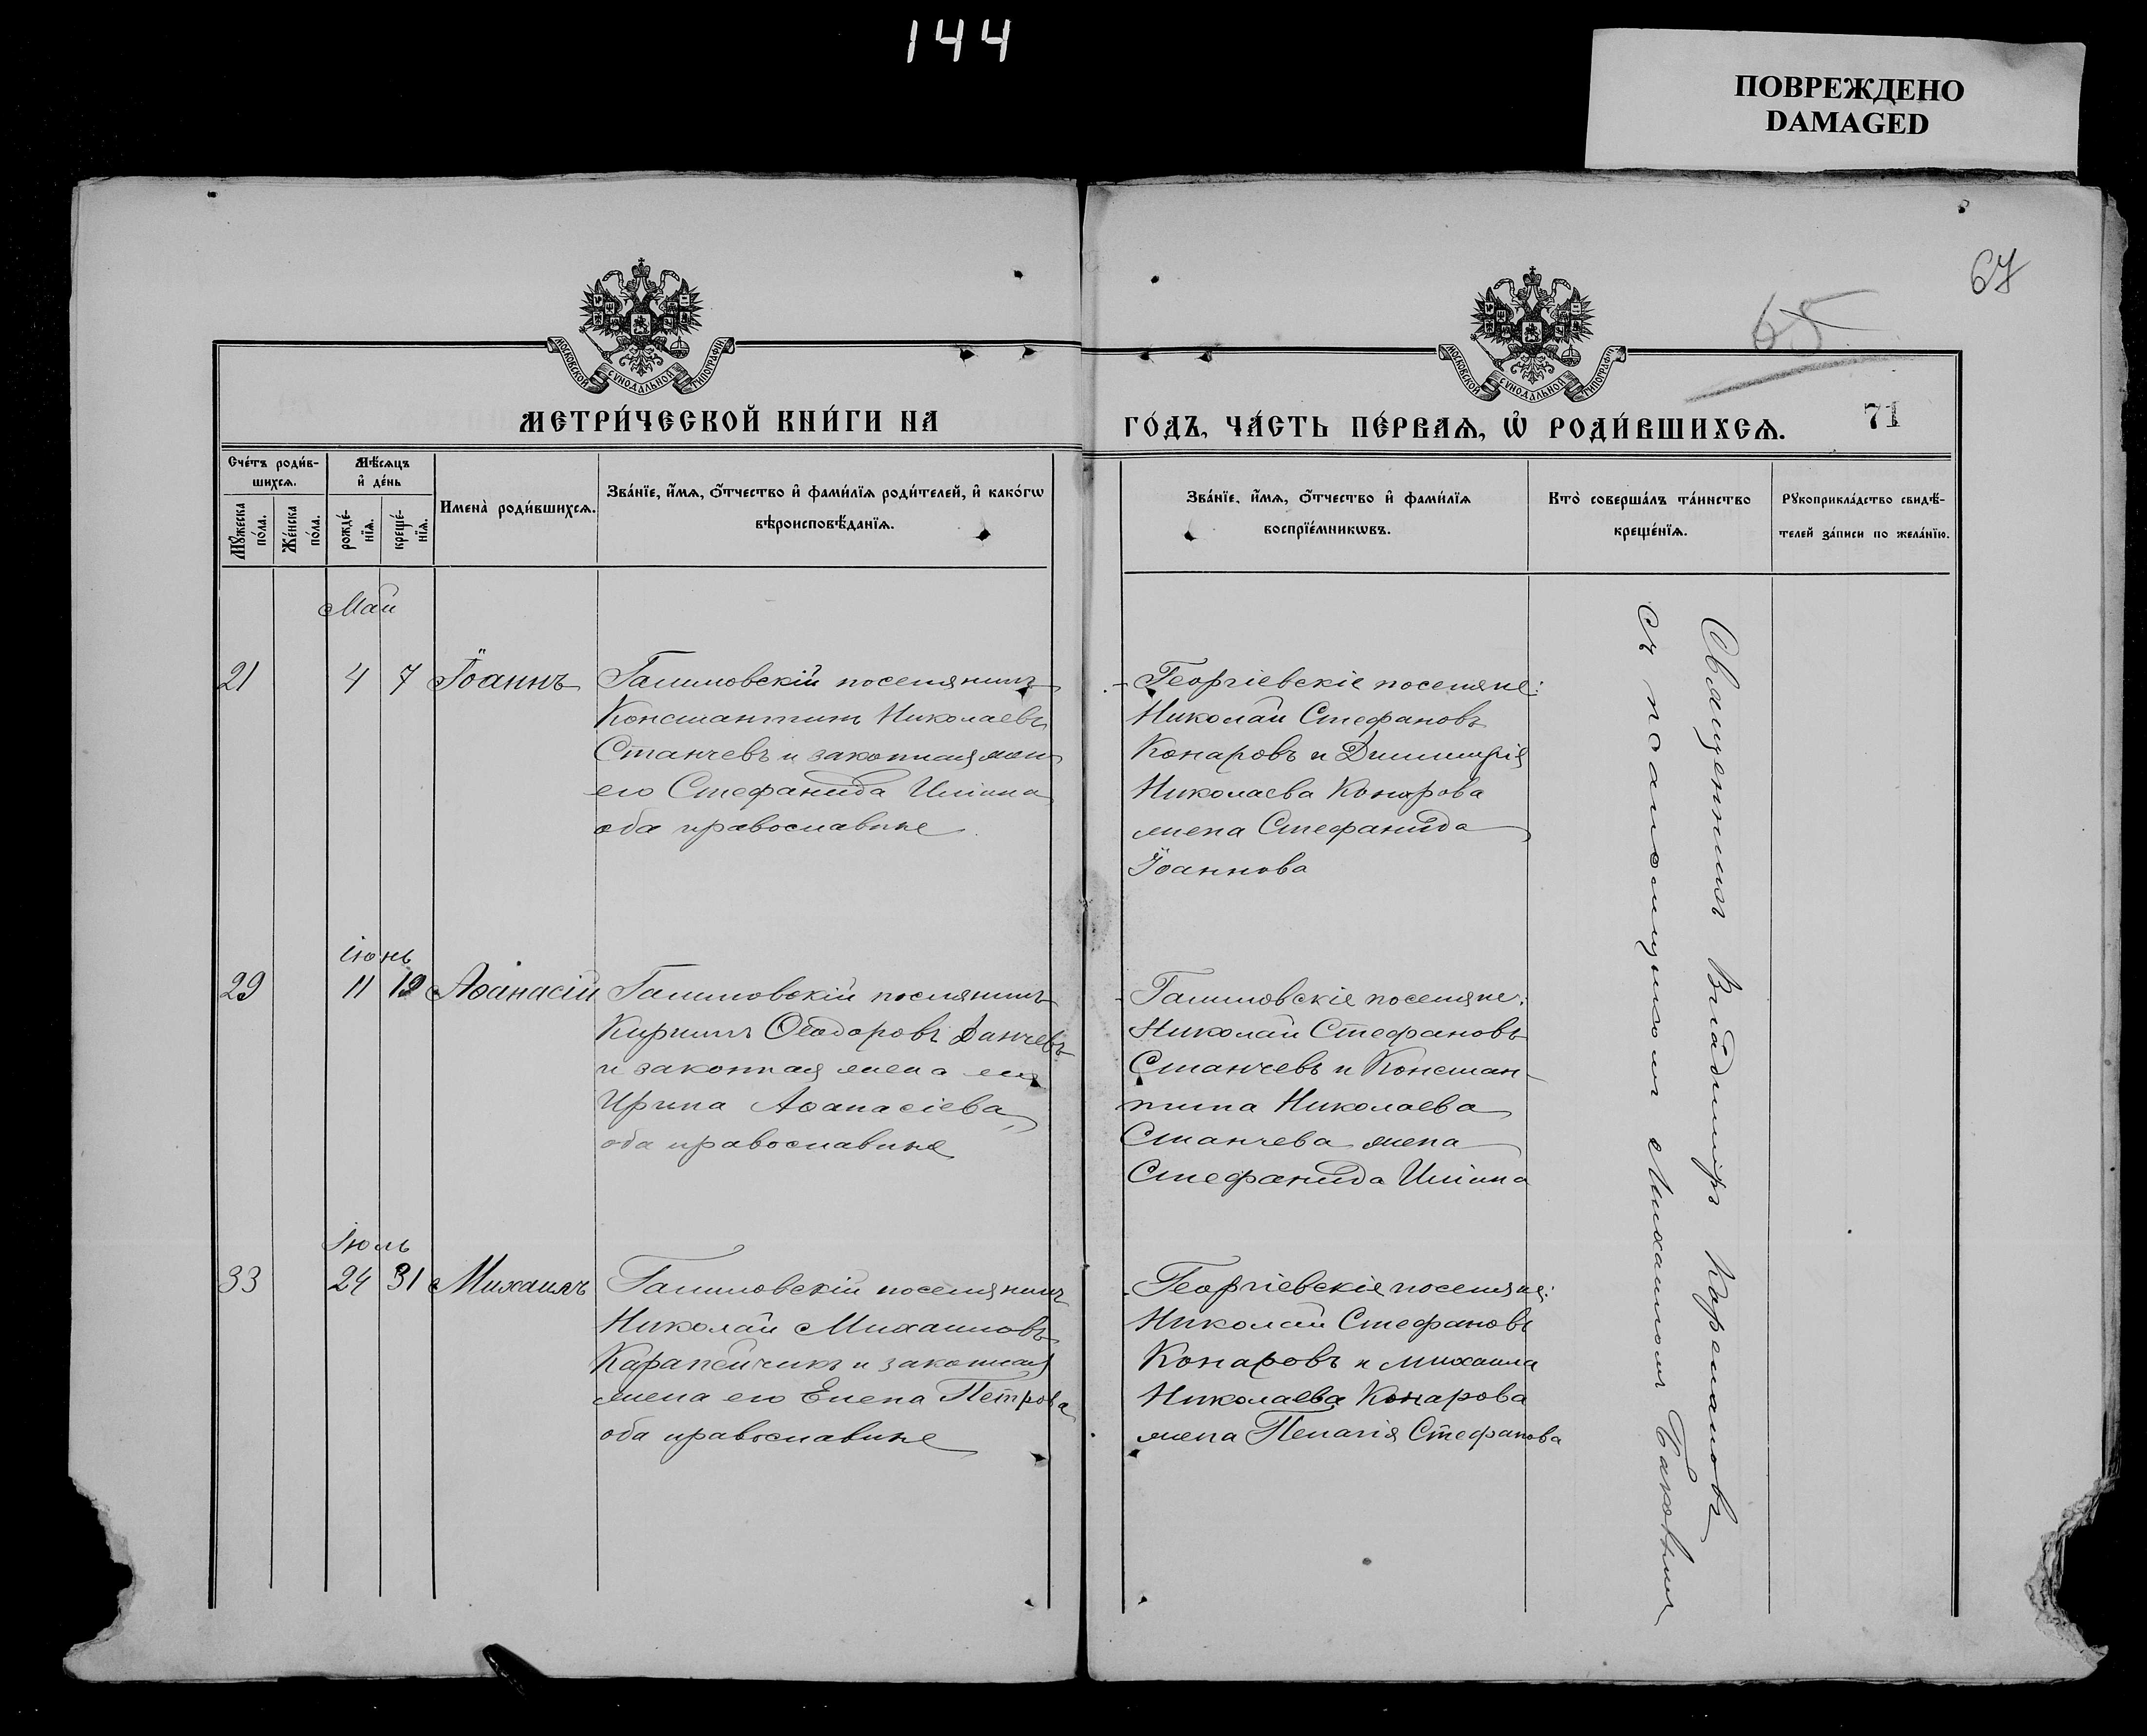 144
ПОВРЕЖДЕНО
DAMAGED
67
65
МОСКОВСКОЙ СѴНОДАЛЬНОЙ ТИПОГРАФІИ
МОСКОВСКОЙ СѴНОДАЛЬНОЙ ТИПОГРАФІИ
МЕТРИ́ЧЕСКОЙ КНИ́ГИ НА
ГО́ДЪ, ЧА́СТЬ ПЕ́РВАѦ, Ѡ҆ РОДИ́ВШИХСѦ.
71
Сче́тъ роди́в-
шихсѧ.
Мꙋ́жеска по́ла.
Же́нска по́ла.
Мѣ́сѧцъ
и҆ де́нь
рожде́-
нїѧ.
креще́-
нїѧ.
Имена̀ роди́вшихсѧ.
Зва́нїе, и҆́мѧ, ѻ҆́тчество и҆ фами́лїѧ роди́телей, и҆ како́гѡ
вѣроисповѣ́данїѧ.
Зва́нїе, и҆́мѧ, ѻ҆́тчество и҆ фами́лїѧ
воспрїе́мникѡвъ.
Кто̀ соверша́лъ та́инство
креще́нїѧ.
Рꙋкоприкла́дство свидѣ́-
телей за́писи по жела́нїю.
Май
21 4 7 Іоаннъ
Галицовскій поселянинъ
Константинъ Николаевъ
Станчевъ и законная жена
его Стефанида Иліина
оба православные
Георгіевскіе поселяне:
Николай Стефановъ
Конаровъ и Димитрія
Николаева Конарова
жена Стефанида
Іоаннова
іюнь
29 11 12 Аѳанасій
Галицовскій поселянинъ
Кириллъ Ѳеодоровъ Данчевъ
и законная жена его
Ирина Аѳанасіева
оба православные
Галицовскіе поселяне:
Николай Стефановъ
Станчевъ и Констан-
тина Николаева
Станчева жена
Стефанида Иліина
Іюль
33 24 31 Михаилъ
Галицовскій поселянинъ
Николай Михаиловъ
Карапейчикъ и законная
жена его Елена Петрова
оба православные
Георгіевскіе поселяне:
Николай Стефановъ
Конаровъ и Михаила
Николаева Конарова
жена Пелагія Стефанова
Священникъ Владиміръ
съ псаломщикомъ Михаиломъ